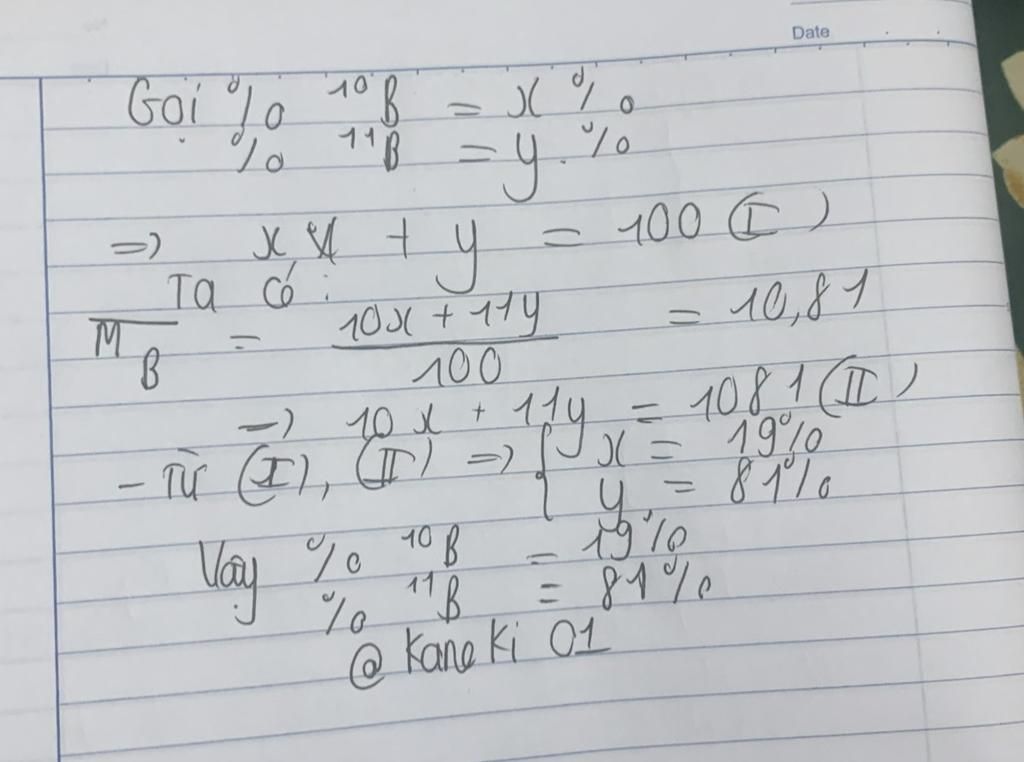 Date
Gọi % ¹⁰B = x %
% ¹¹B = y. %
=> x + y = 100 (I)
Ta có:
M̅_B = (10x + 11y)/100 = 10,81
-> 10x + 11y = 1081 (II)
- Từ (I), (II) => { x = 19%
y = 81%
Vậy % ¹⁰B = 19%
% ¹¹B = 81%
@ Kaneki 01